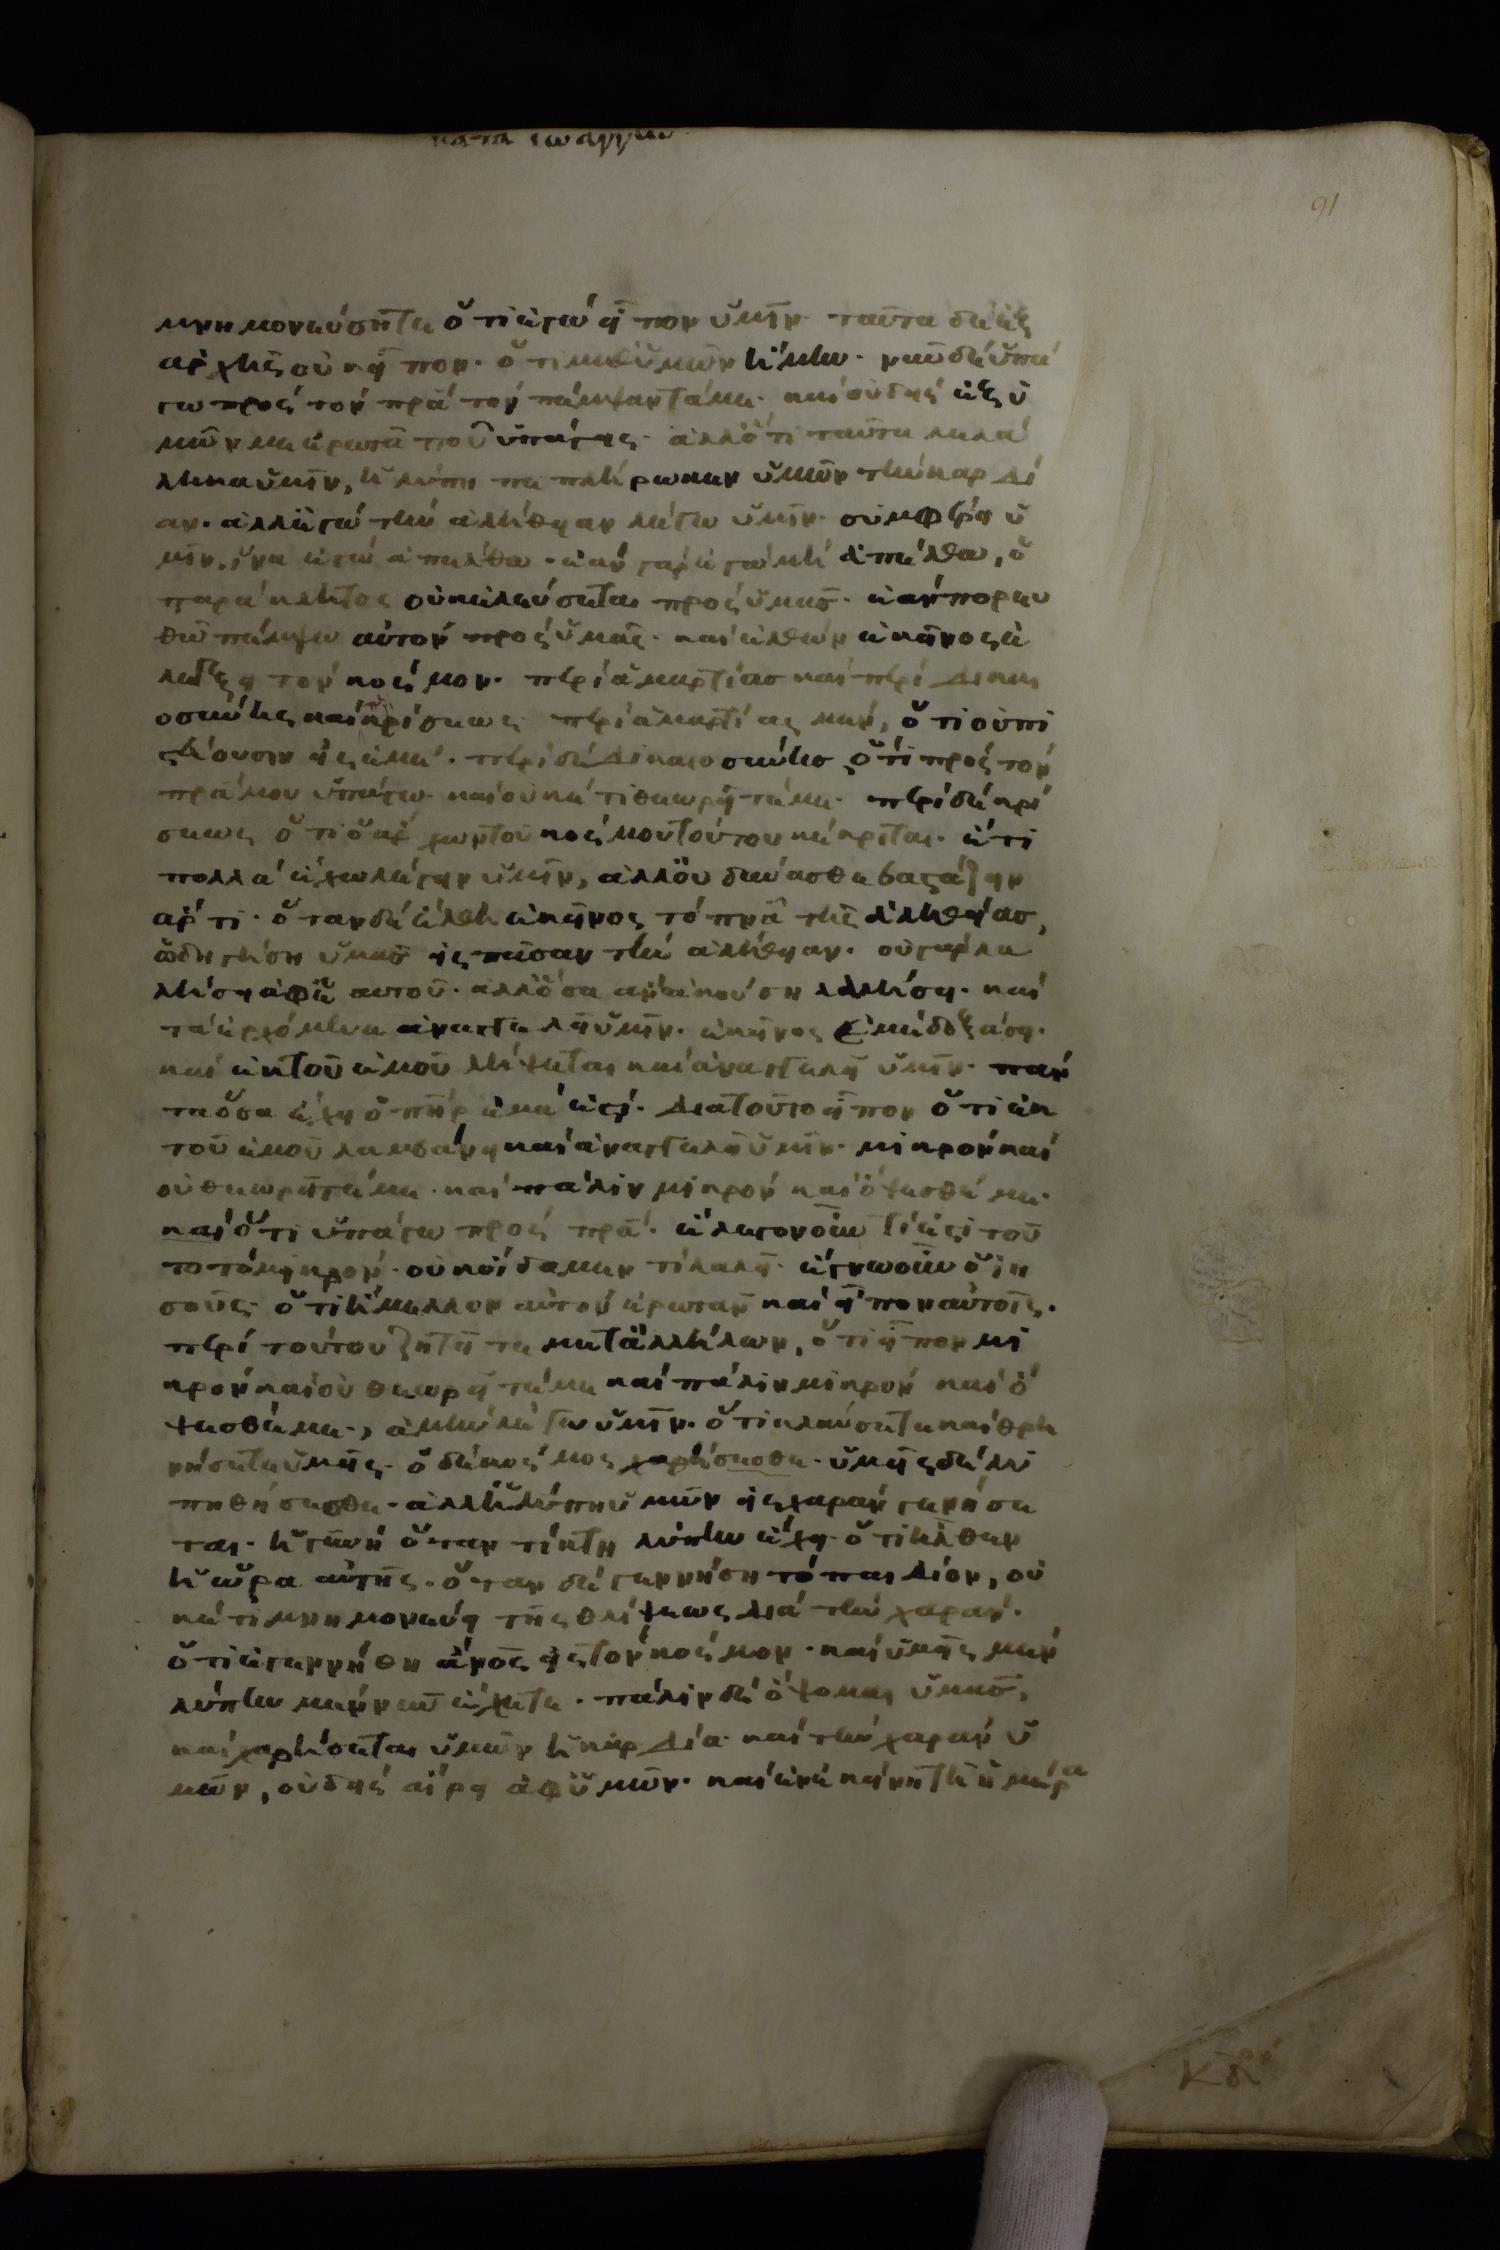 κατα ιωαννην
91
μνημονεύσητε ὅτι ἐγώ εἶπον ὑμῖν· ταῦτα δὲ ἐξ
ἀρχῆς οὐκ εἶπον· ὅτι μεθ ὑμῶν ἤμην· νῦν δὲ ὑπά
γω πρὸς τὸν πρα τὸν πέμψαντά με· καὶ οὐδεὶς ἐξ ὑ
μῶν με ἐρωτᾶ ποῦ ὑπάγεις· ἀλλ ὅτι ταῦτα λελά
ληκα ὑμῖν, ἡ λύπη πεπλήρωκεν ὑμῶν τὴν καρδί
αν· ἀλλ ἐγώ τὴν ἀλήθειαν λέγω ὑμῖν· συμφέρει ὑ
μῖν, ἵνα ἐγώ ἀπέλθω· ἐὰν γὰρ ἐγώ μὴ ἀπέλθω, ὁ
παράκλητος οὐκ ἐλεύσεται πρὸς ὑμᾶς· ἐὰν πορευ
θῶ πέμψω αὐτὸν πρὸς ὑμᾶς· καὶ ἐλθὼν ἐκεῖνος ἐ
λέγξει τὸν κόσμον· περὶ ἁμαρτίας καὶ περὶ δικαι
οσύνης καὶ περὶ κρίσεως· περὶ ἁμαρτίας μέν, ὅτι οὐ πι
στεύουσιν εἰς ἐμέ· περὶ δὲ δικαιοσύνης ὅτι πρὸς τὸν
πρα μου ὑπάγω· καὶ οὐκέτι θεωρεῖτέ με· περὶ δὲ κρί
σεως ὅτι ὁ ἄρχων τοῦ κόσμου τούτου κέκριται· ἔτι
πολλὰ ἔχω λέγειν ὑμῖν, ἀλλ οὐ δύνασθε βαστάζειν
ἄρτι· ὅταν δὲ ἔλθη ἐκεῖνος τὸ πνα τῆς ἀληθείας,
ὁδηγήση ὑμᾶς εἰς πᾶσαν τὴν ἀλήθειαν· οὐ γὰρ λα
λήσει ἀφ ἑαυτοῦ· ἀλλ ὅσα ἂν ἀκούση λαλήσει· καὶ
τὰ ἐρχόμενα ἀναγγελεῖ ὑμῖν· ἐκεῖνος ἐμὲ δοξάσει·
καὶ ἐκ τοῦ ἐμοῦ λήψεται καὶ ἀναγγελεῖ ὑμῖν· πάν
τα ὅσα ἔχει ὁ πηρ ἐμά ἐστι· διατοῦτο εἶπον ὅτι ἐκ
τοῦ ἐμοῦ λαμβάνει καὶ ἀναγγελεῖ ὑμῖν· μικρὸν καὶ
οὐ θεωρεῖτέ με· καὶ πάλιν μικρὸν καὶ ὄψεσθέ με·
καὶ ὅτι ὑπάγω πρὸς πρα· ἔλεγον οὖν τί ἐστι τοῦ
το τὸ μικρόν· οὐκ οἴδαμεν τί λαλεῖ· ἔγνω οὖν ὁ ἰη
σοῦς· ὅτι ἤμελλον αὐτὸν ἐρωτᾶν καὶ εἶπεν αὐτοῖς·
περὶ τούτου ζητεῖτε μετ ἀλλήλων, ὅτι εἶπον μι
κρὸν καὶ οὐ θεωρεῖτέ με καὶ πάλιν μικρὸν καὶ ὄ
ψεσθέ με, ἀμὴν λέγω ὑμῖν· ὅτι κλαύσετε καὶ θρη
νήσετε ὑμεῖς· ὁ δὲ κόσμος χαρήσεσθε· ὑμεῖς δὲ λυ
πηθήσεσθε· ἀλλ ἡ λύπη ὑμῶν εἰς χαρὰν γενήσε
ται· ἡ γυνὴ ὅταν τίκτη λύπην ἔχει· ὅτι ἦλθεν
ἡ ὥρα αὐτῆς· ὅταν δὲ γεννήση τὸ παιδίον, οὐ
κέτι μνημονεύει τῆς θλίψεως διὰ τὴν χαράν·
ὅτι ἐγεννήθη ἄνος εἰς τὸν κόσμον· καὶ ὑμεῖς μὲν
λύπην μὲν νῦν ἔχετε· πάλιν δὲ ὄψομαι ὑμᾶς,
καὶ χαρήσεται ὑμῶν ἡ καρδία· καὶ τὴν χαρὰν ὑ
μῶν, οὐδεὶς αἴρει ἀφ ὑμῶν· καὶ ἐν ἐκείνη τῆ ἡμέρα